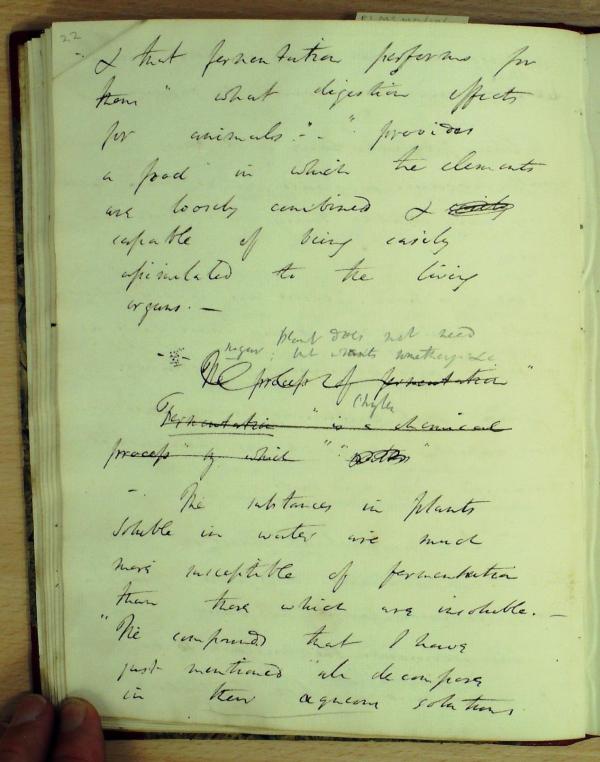 22
& that fermentation performs for
them " what digestion effects
for animals - " - " provides
a food in which the elements
are loosely combined & easily
capable of being easily
assimilated to the living
organs. —
plant does not need
sugar; but wants something
The process of fermentation "
Fermentation " is a chemical
process " by which " "
- The substances in plants
soluble in water are much
more susceptible of fermentation
than those which are insoluble. —
"The compounds that I have
just mentioned "all decompose
in their aqueous solutions